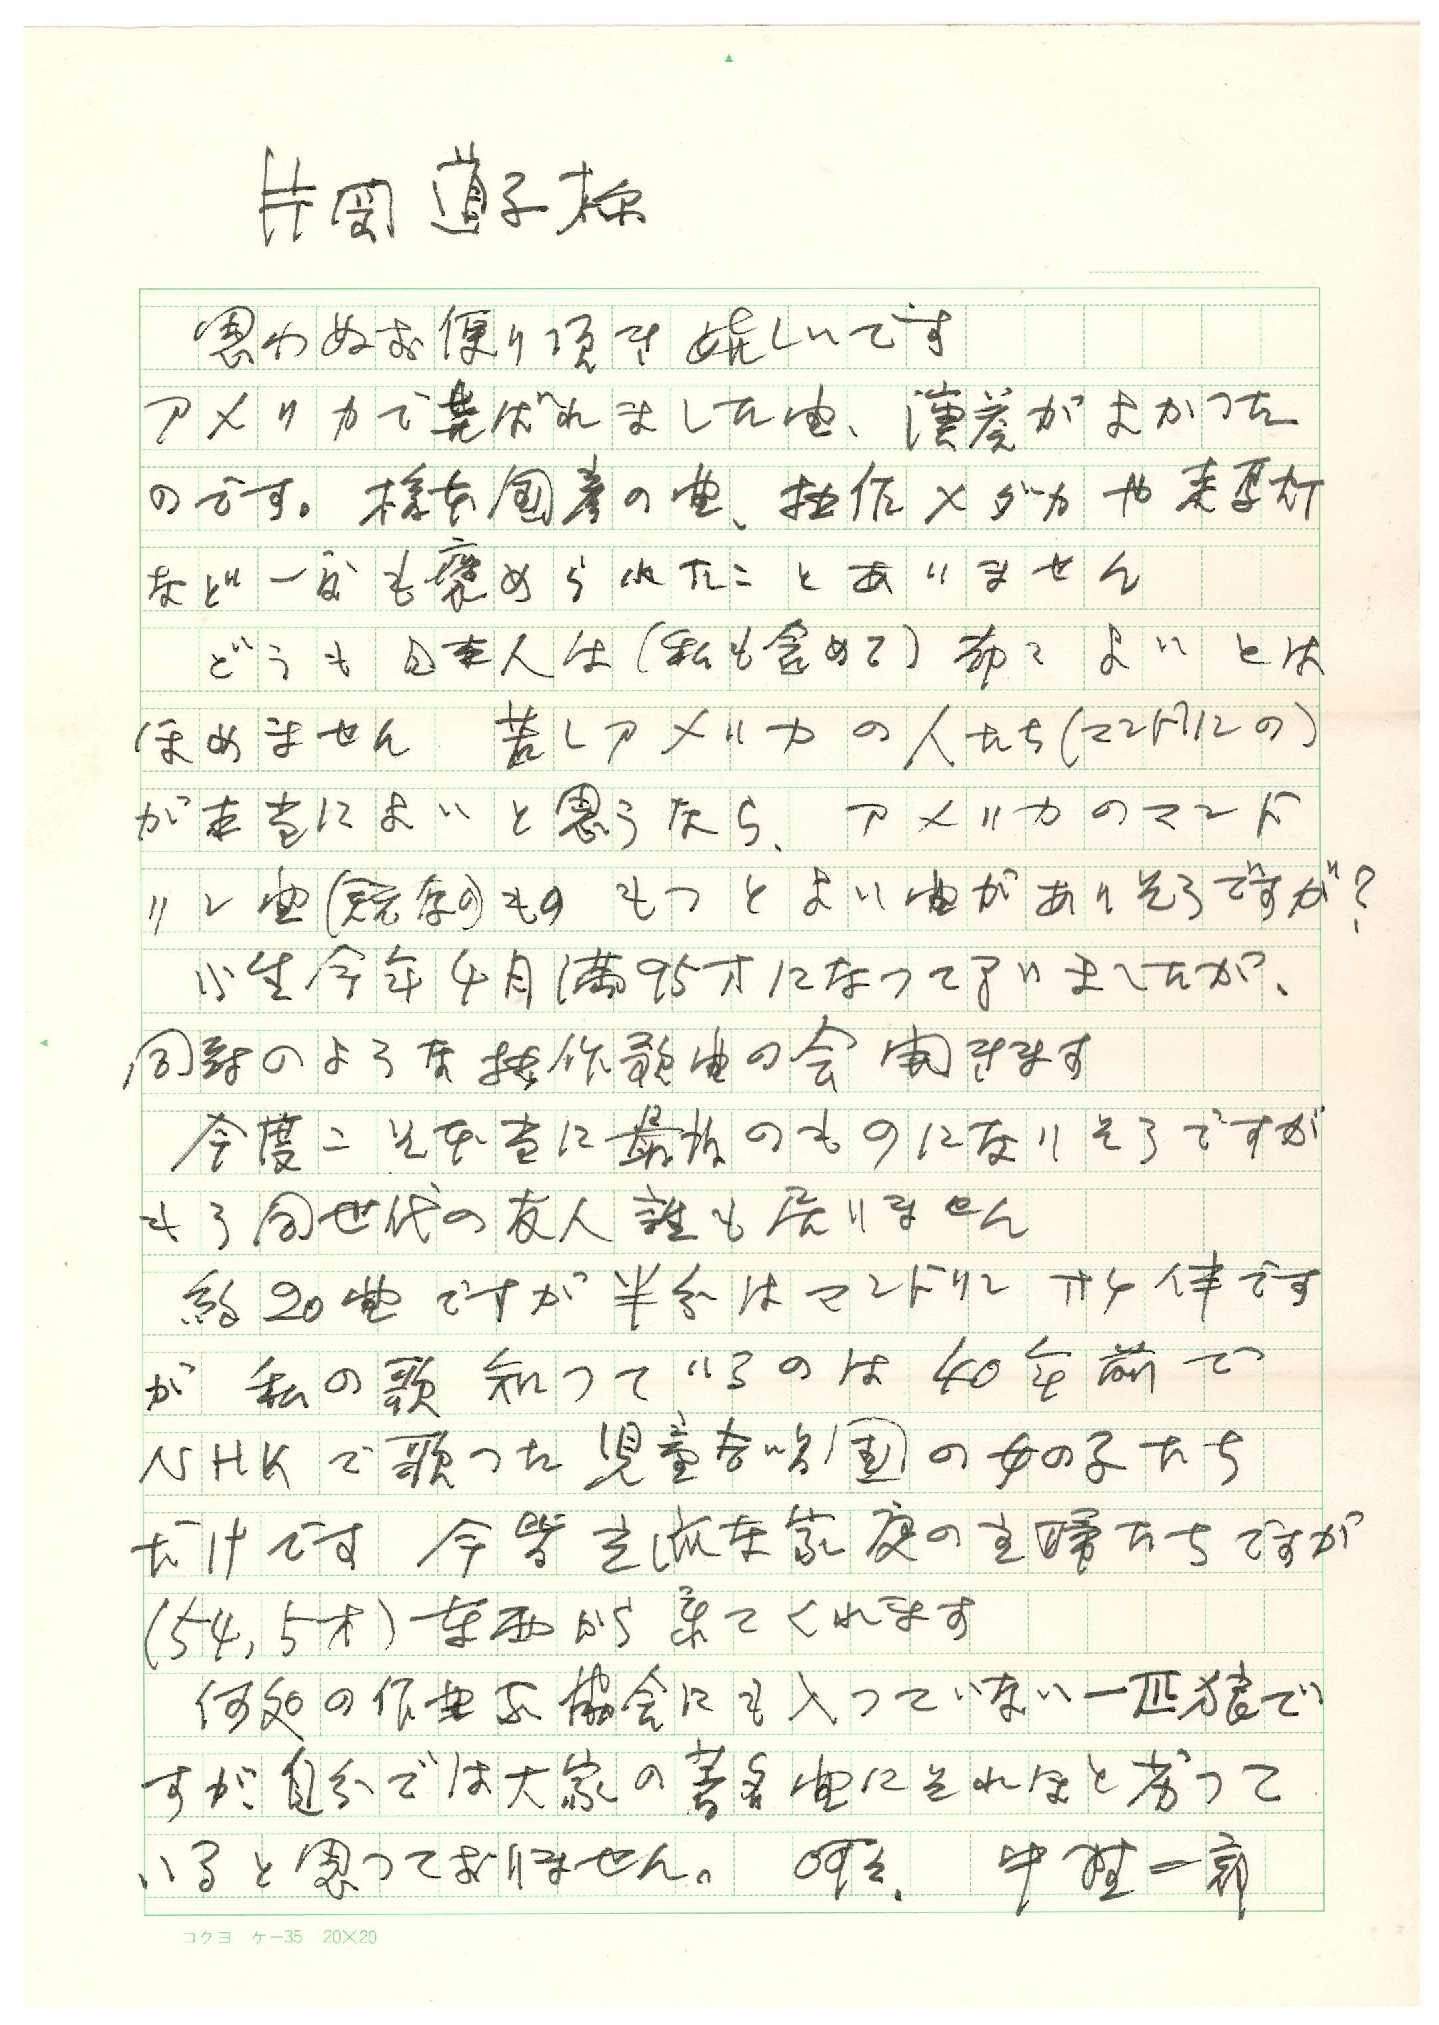 片岡 道子様
思わぬお便り頂き 嬉しいです
アメリカで喜ばれました曲、演奏がよかった
のです。 の曲、拙作メダカや
など一度も褒められたことありません
どうも日本人は(私も含めて) よいとは
ほめません 若しアメリカの人たち(マンドリンの)
が本当によいと思うなら、 アメリカのマンド
リン曲(既存の)もの もっとよい曲がありそうですが?
小生今年4月満95才になって了いましたが、
同封のような拙作歌曲の会 開きます
今度こそ本当に最後のものになりそうですが
もう同世代の友人 誰も居りません
約20曲ですが半分はマンドリンオケ伴です
が 私の歌 知っているのは 40年前で
NHKで歌った 児童合唱団の女の子たち
だけです 今皆立派な家庭の主婦たちですが
(54,5才) 東西から来てくれます
何処の作曲家協会にも入っていない一匹狼で
すが、自分では大家の著名曲にそれほど劣って
いると思っておりません。 中野二郎
コクヨ ケー35 20×20